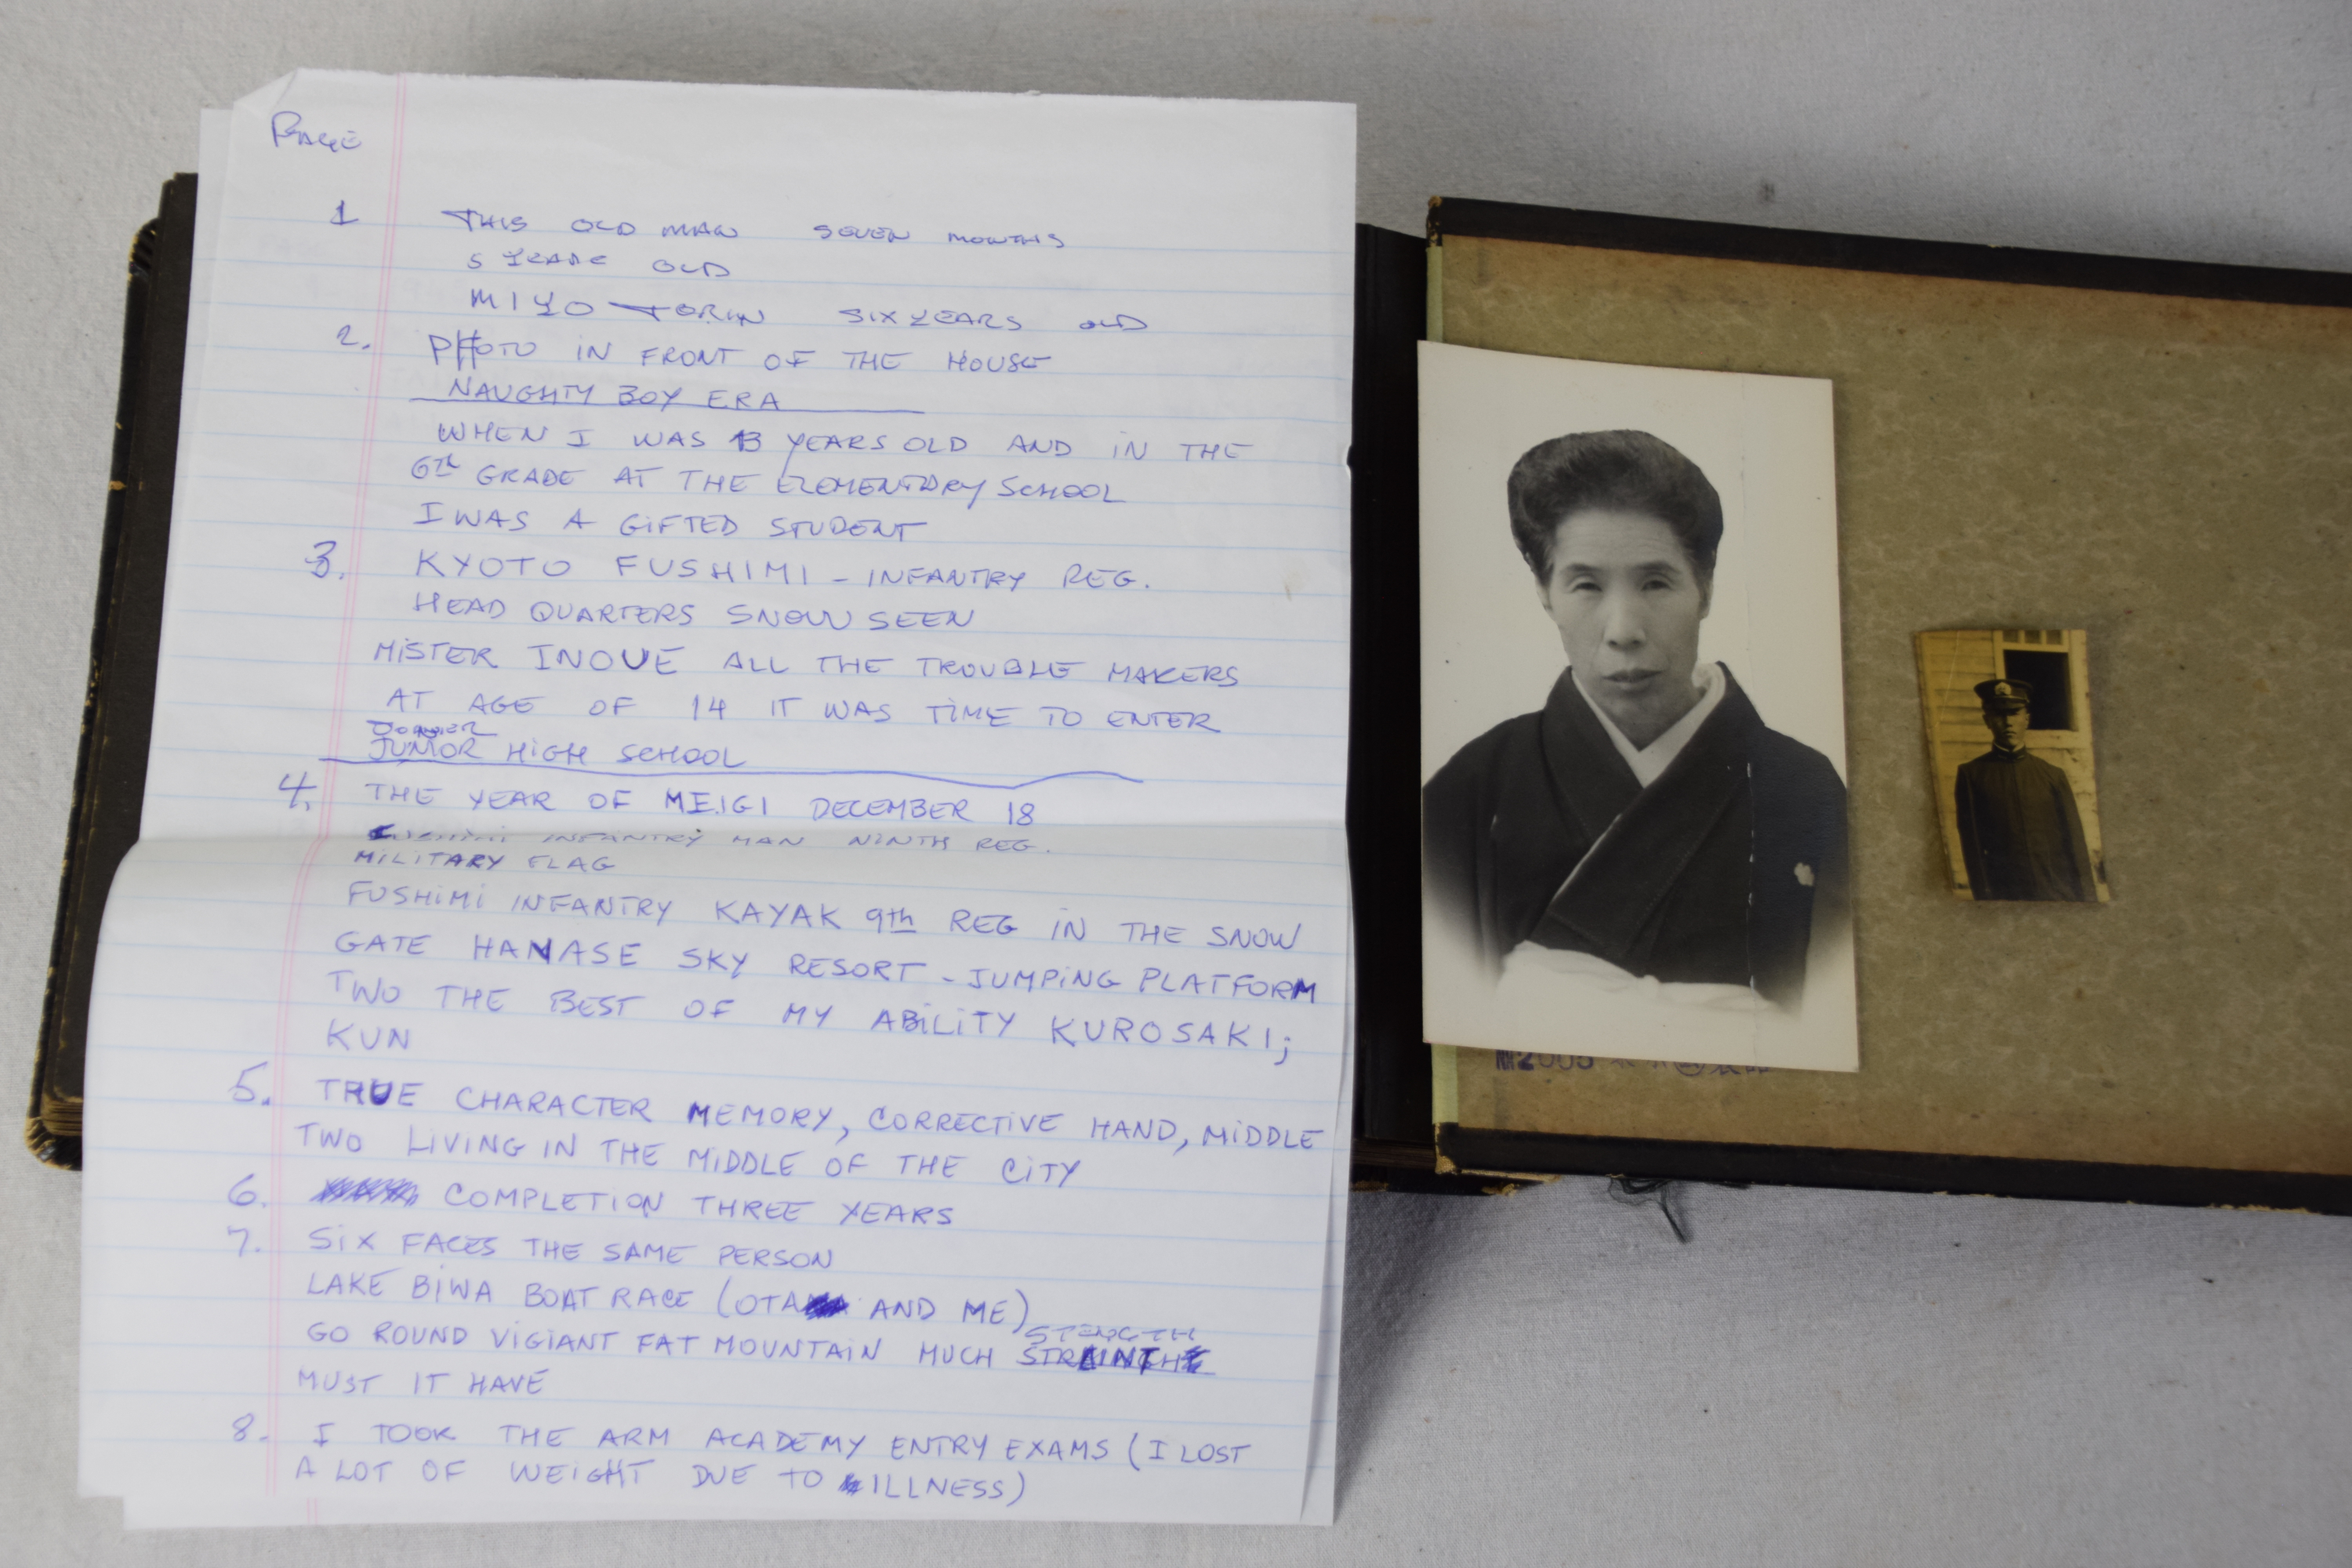 PAGE
1 THIS OLD MAN SEVEN MONTHS
5 YEARS OLD
MIYO TORIN SIX YEARS OLD
2. PHOTO IN FRONT OF THE HOUSE
NAUGHTY BOY ERA
WHEN I WAS 13 YEARS OLD AND IN THE
6TH GRADE AT THE ELEMENTARY SCHOOL
I WAS A GIFTED STUDENT
3. KYOTO FUSHIMI - INFANTRY REG.
HEAD QUARTERS SNOW SEEN
MISTER INOUE ALL THE TROUBLE MAKERS
AT AGE OF 14 IT WAS TIME TO ENTER
JUNIOR HIGH SCHOOL
4. THE YEAR OF MEIGI DECEMBER 18
INFANTRY MAN NINTH REG.
MILITARY FLAG
FUSHIMI INFANTRY KAYAK 9th REG IN THE SNOW
GATE HANASE SKY RESORT - JUMPING PLATFORM
TWO THE BEST OF MY ABILITY KUROSAKI;
KUN
5. TRUE CHARACTER MEMORY, CORRECTIVE HAND, MIDDLE
TWO LIVING IN THE MIDDLE OF THE CITY
6. COMPLETION THREE YEARS
7. SIX FACES THE SAME PERSON
LAKE BIWA BOAT RACE (OTA AND ME)
STENGTH
GO ROUND VIGIANT FAT MOUNTAIN MUCH
MUST IT HAVE
8. I TOOK THE ARM ACADEMY ENTRY EXAMS (I LOST
A LOT OF WEIGHT DUE TO ILLNESS)